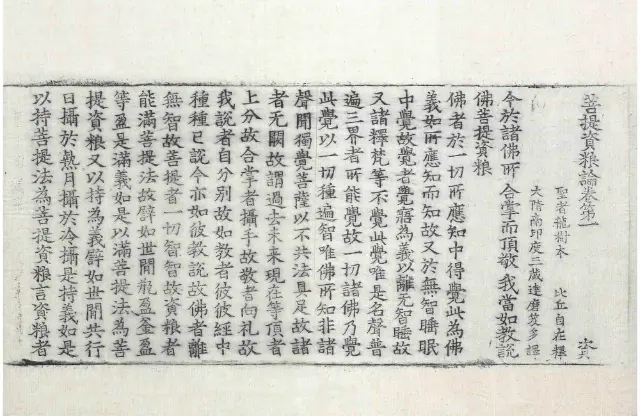 菩提資糧論卷第一 次
聖者龍樹本 比丘自在釋
大隋南印度三藏達磨笈多譯
今於諸佛所 合掌而頂敬 我當如教說
佛菩提資糧
佛者於一切所應知中得覺此為佛
義如所應知而知故又於無智睡眠
中覺故覺者覺寤為義以離无智睡故
又諸釋梵等不覺此覺唯是名聲普
遍三界者所能覺故一切諸佛乃覺
此覺以一切種遍智唯佛所知非諸
聲聞獨覺菩薩以不共法具足故諸
者无闕故謂過去未來現在等頂者
上分故合掌者攝手故敬者向礼故
我說者自分別故如教者彼彼經中
種種已說今亦如彼教說故佛者離
無智故菩提者一切智智故資糧者
能滿菩提法故譬如世閒瓶盈釜盈
等盈是滿義如是以滿菩提法為菩
提資糧又以持為義譬如世閒共行
日攝於熱月攝於冷攝是持義如是
以持菩提法為菩提資糧言資糧者